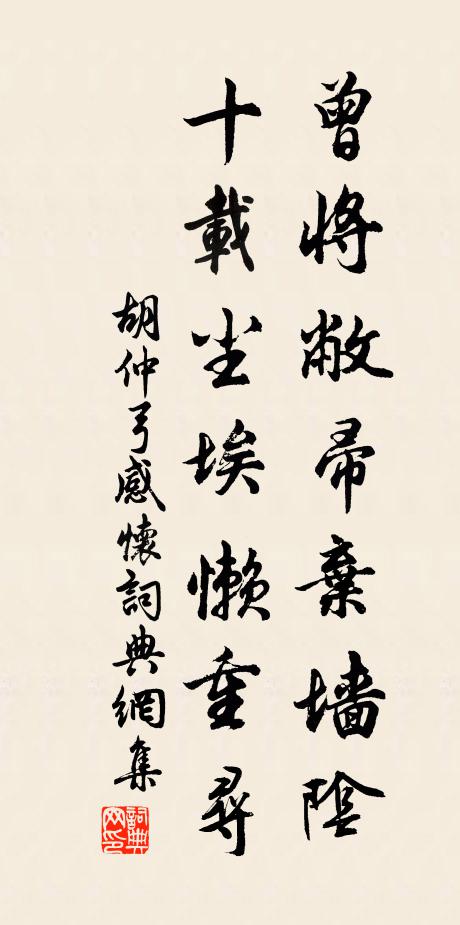 曾將敝帚棄墻陰
十載尘埃懶重尋
胡仲弓感懷詞典網集
詞典网印